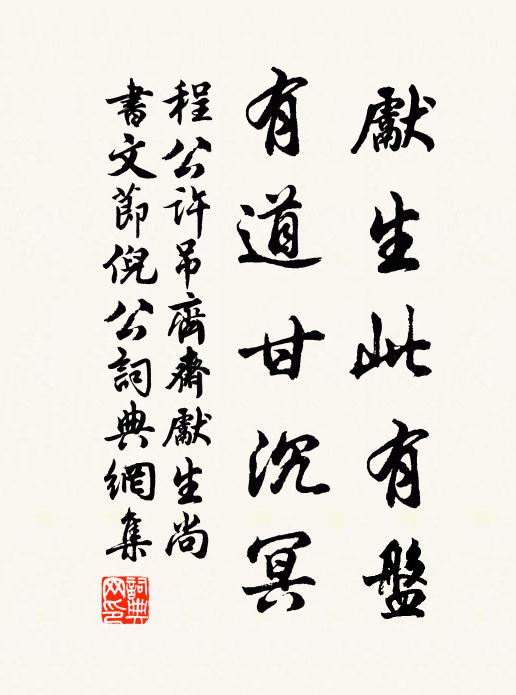 獻生此有盤
有道甘沉冥
程公許吊齊齋獻生尚
書文節倪公詞典網集
詞典网印